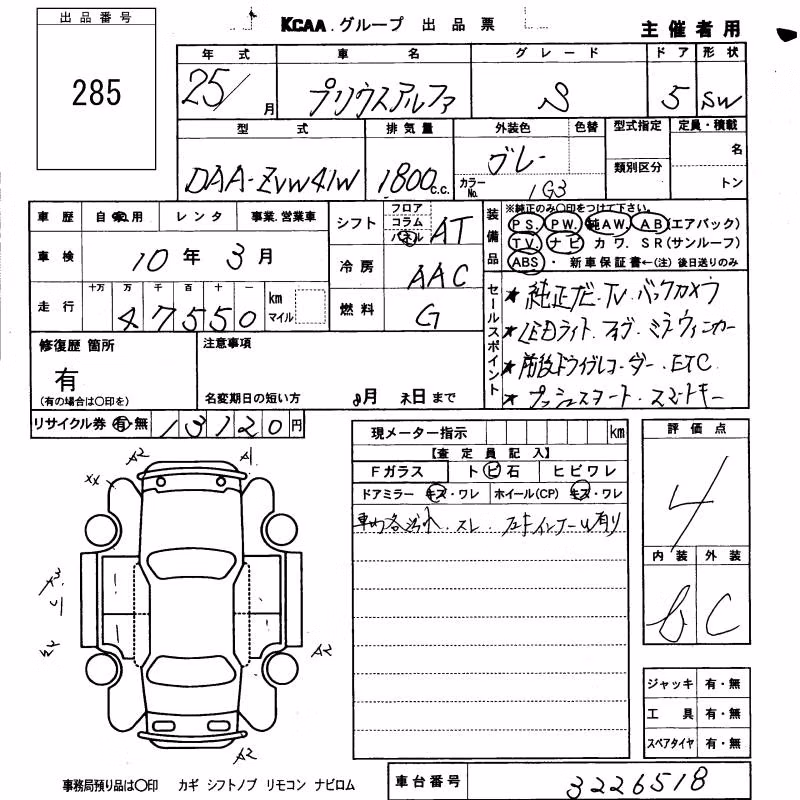 出品番号
285
KCAA.グループ 出品票
主催者用
年式 車名 グレード ドア 形状
25/ 月 プリウスアルファ S 5 SW
型式 排気量 外装色 色替 型式指定 定員・積載
DAA-ZVW41W 1800 c.c. グレー 類別区分 名
カラーNo. 1G3 トン
車歴 自家用 レンタ 事業.営業車
車検 10年 3月
走行 十万 万 千 百 十 一 km マイル
47550
シフト フロア コラム パネル AT
冷房 AAC
燃料 G
装備品
※純正のみ〇印をつけて下さい。
PS. PW. 純AW. AB(エアバック)
TV. ナビ カワ. SR(サンルーフ)
ABS ・新車保証書←(注)後日送りのみ
セールスポイント
★純正ナビ.TV.バックカメラ
★LEDライト.フォグ.ミラーウィンカー
★前後ドライブレコーダー.ETC
★プッシュスタート.スマートキー
修復歴 箇所 注意事項
有
(有の場合は〇印を) 名変期日の短い方 月 日まで
リサイクル券 有・無 13120円
現メーター指示 km
【査定員記入】
Fガラス トビ石 ヒビワレ
ドアミラー キズ・ワレ ホイール(CP) キズ・ワレ
車内各汚れ.スレ.
評価点
4
内装 外装
B C
A2 A1
XX
A3
W2
A2
A2
ジャッキ 有・無
工具 有・無
スペアタイヤ 有・無
事務局預り品は〇印 カギ シフトノブ リモコン ナビロム
車台番号 3226518